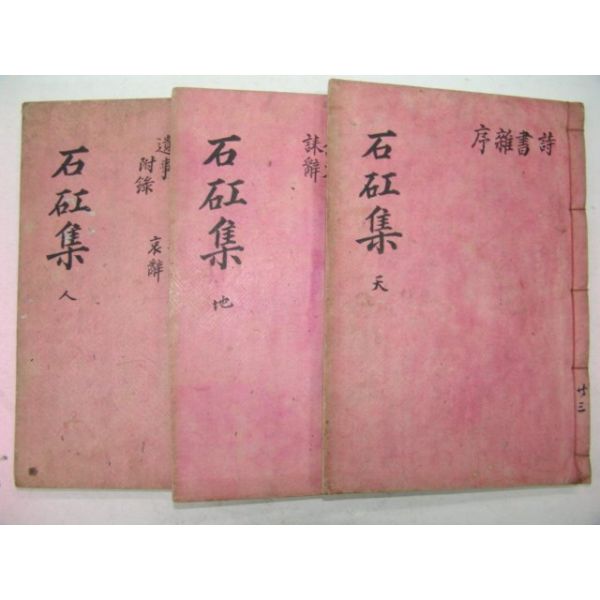 詩書雜序
石矼集
天
共三
誄辭
石矼集
地
遺事
附錄
哀辭
石矼集
人